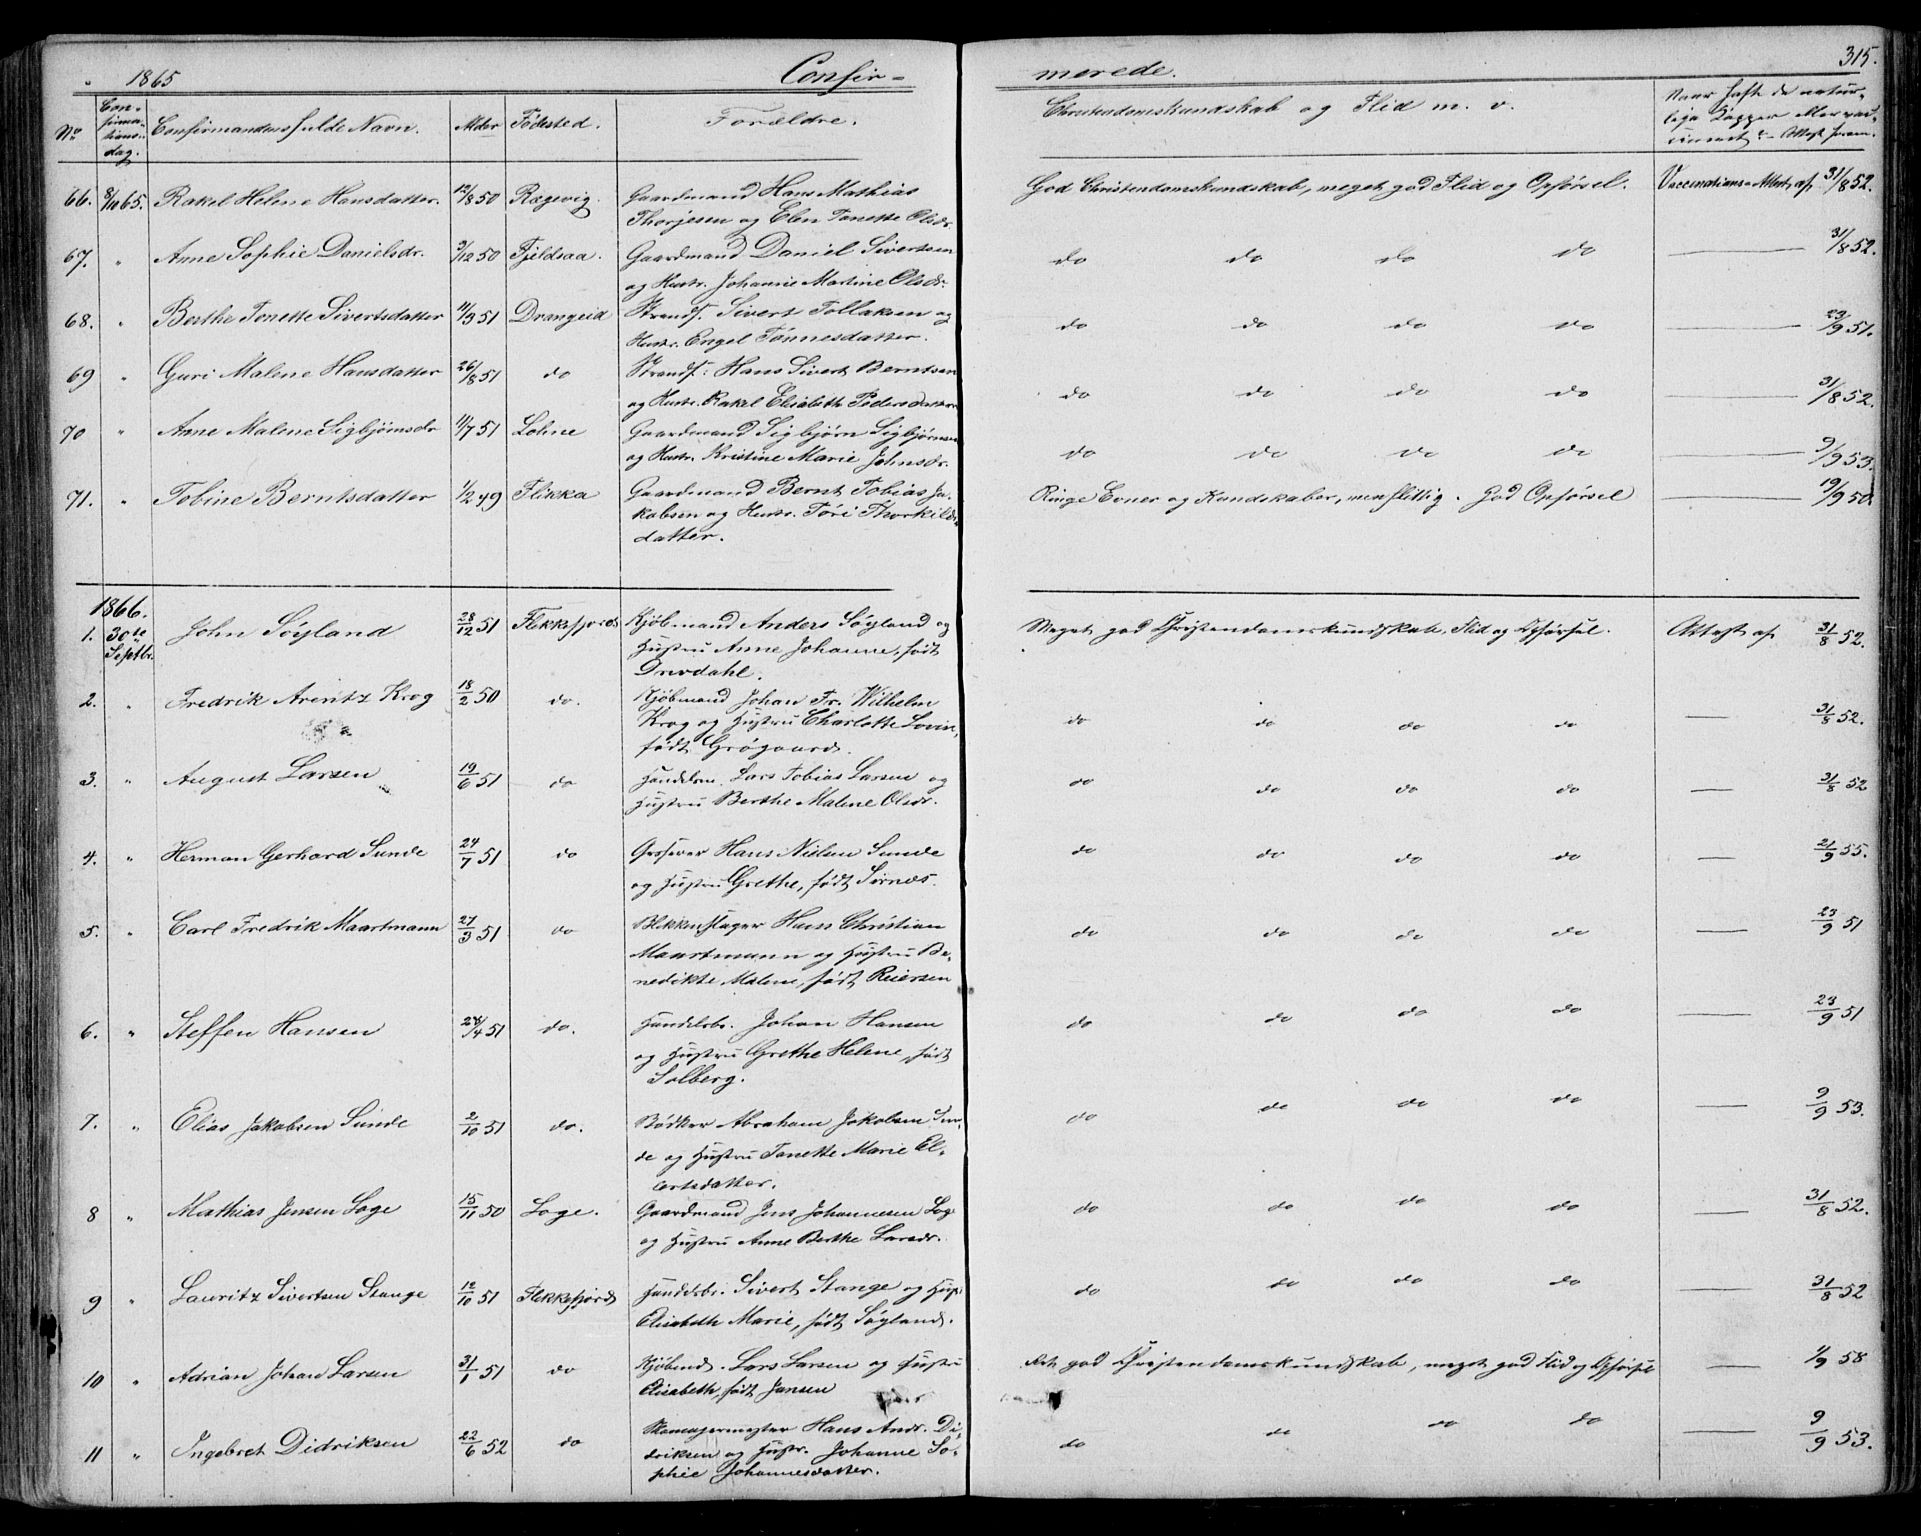 1865 Confir- merede. 315.
No Confirmations-dag. Confirmandens fulde Navn. Alder Fødested. Forældre. Christendomskundskab og Flid m. v. Naar hafte de naturlige Kopper eller vaccineret
66. 8/10 65. Rakel Helene Hansdatter. 12/8 50 Rægevig. Gaardmand Hans Mathias God Christendomskundskab, meget god Flid og Opførsel. Vaccinations-Attest af 31/8 52.
Thorjesen og Elen Tonette Olsdr.
67. " Anne Sophie Danielsdr. 3/12 50 Fjeldsaa. Gaardmand Daniel Sivertsen do do do do — 31/8 52.
og Hustr. Johanne Martine Olsdr.
68. " Berthe Tonette Sivertsdatter 11/9 51 Drangeid Strands. Sivert Tollaksen og do do do do — 23/9 51.
Hustr. Engel Tønnesdatter.
69 " Guri Malene Hansdatter 26/8 51 do Strands. Hans Sivert Berntsen do do do do — 31/8 52.
og Hustr. Rakel Elisabeth Pedersdatter
70 " Anne Malene Sigbjørnsdr 11/7 51 Lohne Gaardmand Sigbjørn Sigbjørnsen do do do do — 9/9 53.
og Hustr. Kristine Marie Johnsdr.
71. " Tobine Berntsdatter 1/2 49 Flikka Gaardmand Bernt Tobias Ja- Ringe Evner og Kundskaber, men flittig. God Opførsel — 19/9 50.
kobsen og Hustr. Tøri Thorkilds-
datter.
1866.
1. 30te Septbr. John Søyland 28/12 51 Flekkefjord Kjøbmand Anders Søyland og Meget god Christendomskundskab, Flid og Opførsel. Attest af 31/8 52.
Hustru Anne Johanne, født
Drivdahl.
2. " Fredrik Arentz Krog 18/2 50 do. Kjøbmand Johan Fr. Wilhelm do do do do — 31/8 52.
Krog og Hustru Charlotte Lovin,
født Grøgaard.
3. " August Larsen 19/6 51 do Handelsm. Lars Tobias Larsen og do do do do — 31/8 52
Hustru Berthe Malene Olsdr.
4. " Herman Gerhard Sunde 24/7 51 do Grosserer Hans Nielsen Sunde do do do do — 21/9 55.
og Hustru Grethe, født Sirnæs.
5. " Carl Fredrik Maartmann 27/3 51 do Blikkenslager Hans Christian do do do do — 23/9 51
Maartmann og Hustru Be-
nedikte Malene, født Reiersen
6. " Steffen Hansen 28/4 51 do. Handelsb. Johan Hansen do do do do — 23/9 51
og Hustru Grethe Helene, født
Solberg.
7. " Elias Jakobsen Sunde 2/10 51 do. Bødker Abraham Jakobsen Sun- do do do do — 9/9 53.
de og Hustru Tonette Marie El-
ertsdatter.
8 " Mathias Jensen Loge 15/11 50 Loge. Gaardmand Jens Johannesen Loge do do do do — 31/8 52.
og Hustru Anne Berthe Larsdr.
9 " Lauritz Sivertsen Stange 12/10 51 Flekkefjord Handelsb. Sivert Stange og Hust. do do do do — 31/8 52
Elisabeth Marie, født Søyland.
10 " Adrian Johan Larsen 31/1 51 do Kjøbmd. Lars Larsen og Hustru Ret god Christendomskundskab, meget god Flid og Opførsel — 1/9 58
Elisabeth, født Jansen
11 " Ingebret Didriksen 22/6 52 do Skomagermester Hans Andr. Di- do do do do — 9/9 53.
driksen og Hustr. Johanne So-
phie Johannesdatter.